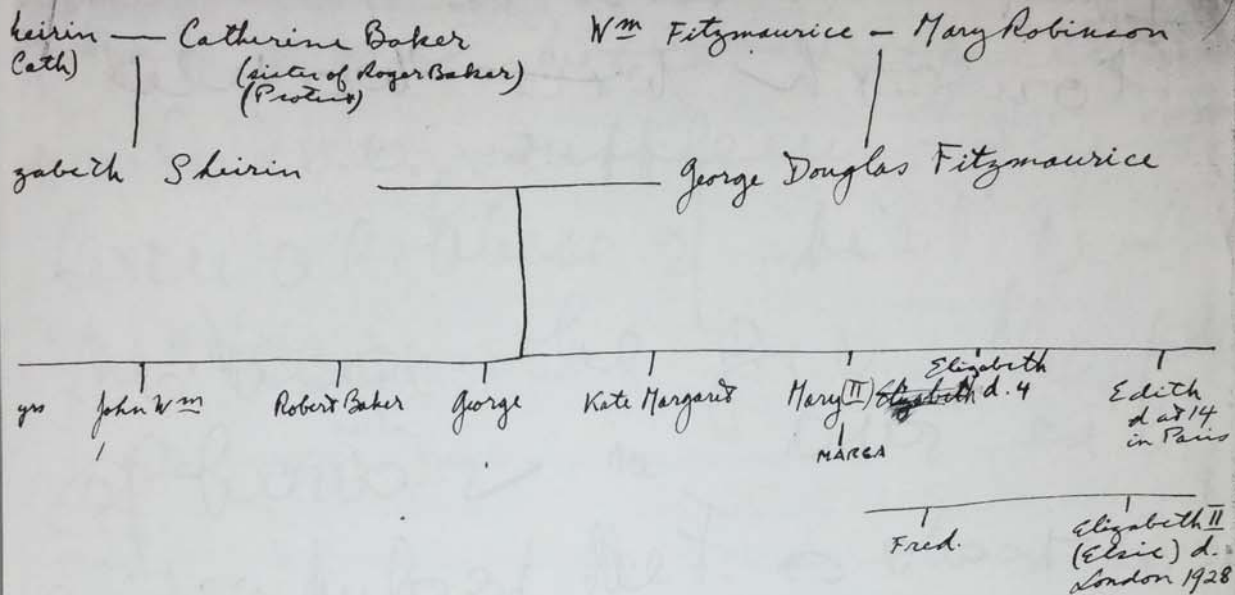 heirin — Catherine Baker Wm Fitzmaurice – Mary Robinson
Cath) (sister of Roger Baker)
(Protest)
zabeth Sheirin George Douglas Fitzmaurice
Elizabeth
yrs John Wm Robert Baker George Kate Margaret Mary (II) Elizabeth d. 4 Edith
d at 14
in Paris
MARGA
Fred. Elizabeth II
(Elsie) d.
London 1928